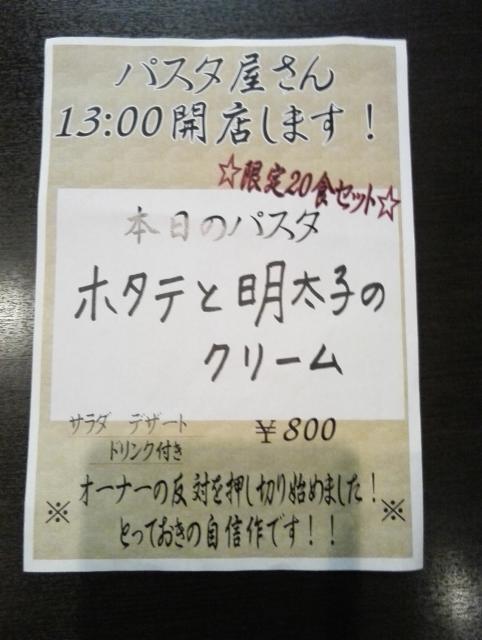 パスタ屋さん
13:00開店します！
☆限定20食セット☆
本日のパスタ
ホタテと明太子の
クリーム
サラダ デザート
ドリンク付き
¥800
※ オーナーの反対を押し切り始めました！ ※
とっておきの自信作です！！